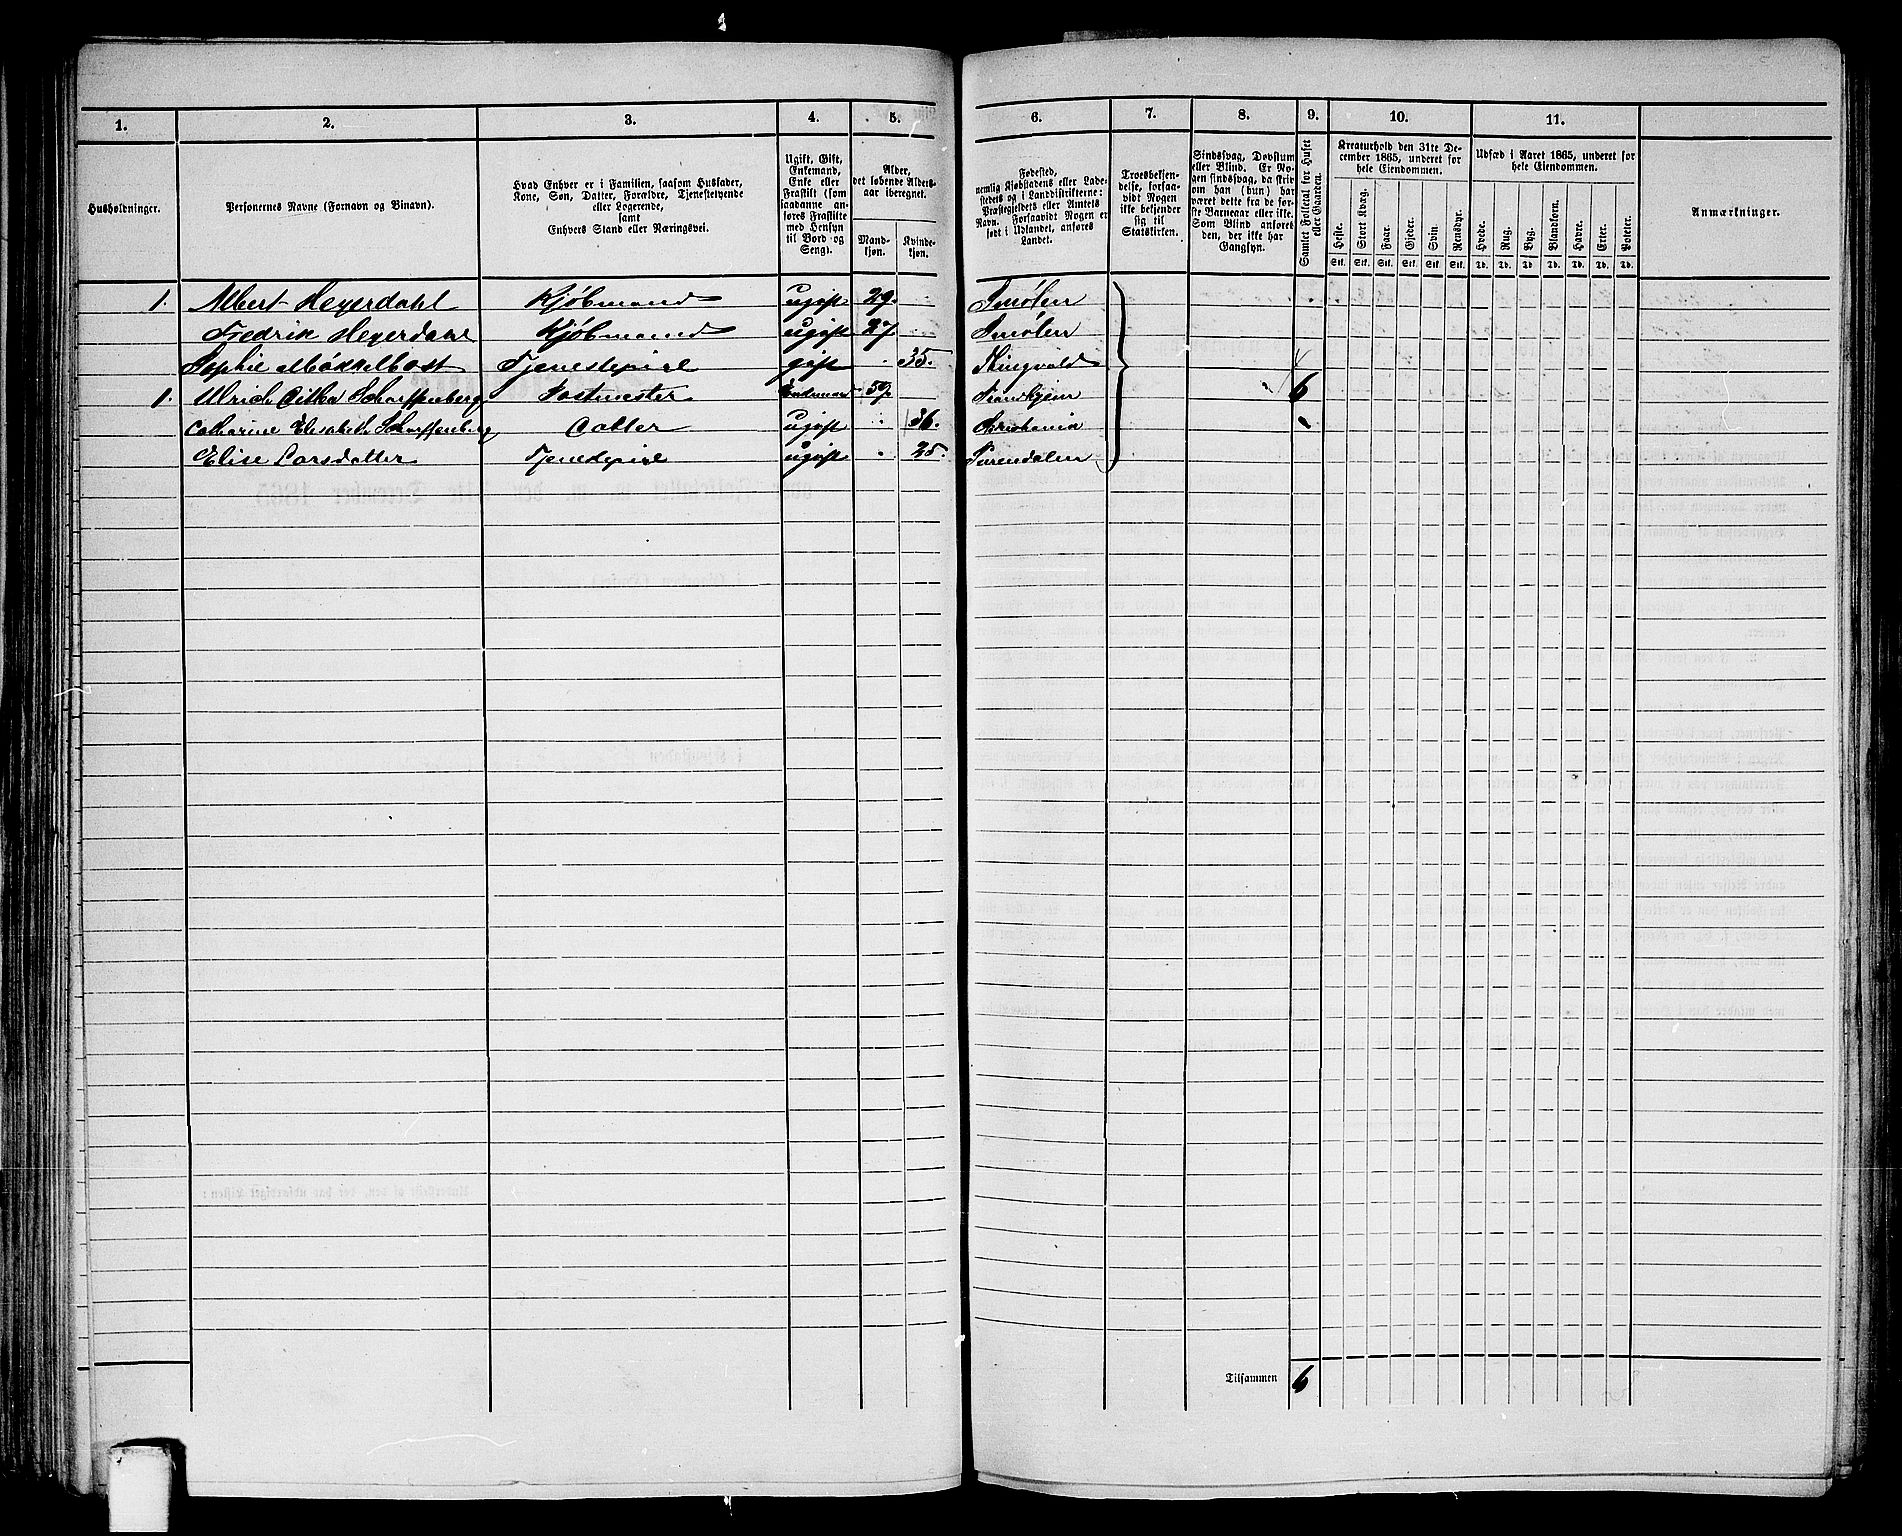 1. 2. 3. 4. 5. 6. 7. 8. 9. 10. 11.
Husholdninger.
Personernes Navne (Fornavn og Binavn).
Hvad Enhver er i Familien, saasom Husfader,
Kone, Søn, Datter, Forældre, Tjenestetyende
eller Logerende,
samt
Enhvers Stand eller Næringsvei.
Ugift, Gift,
Enkemand,
Enke eller
Fraskilt (som
saadanne an-
føres Fraskilte
med Hensyn
til Bord og
Seng).
Alder,
det løbende Alders-
aar iberegnet.
Mand-
kjøn.
Kvinde-
kjøn.
Fødested,
nemlig Kjøbstadens eller Lade-
stedets og i Landdistrikterne:
Præstegjeldets eller Amtets
Navn. Forsaavidt Nogen er
født i Udlandet, anføres
Landet.
Troesbekjen-
delse, forsaa-
vidt Nogen
ikke bekjender
sig til
Statskirken.
Sindssvag, Døvstum
eller Blind. Er No-
gen sindssvag, da skriv
om han (hun) har
været dette fra de før-
ste Barneaar eller ikke.
Som Blind anføres
den, der ikke har
Gangsyn.
Samlet Folketal for Huset
eller Gaarden.
Kreaturhold den 31te De-
cember 1865, underet for
hele Eiendommen.
Heste. Stort Kvæg. Faar. Gjeder. Svin. Rensdyr.
Stk. Stk. Stk. Stk. Stk. Stk.
Udsæd i Aaret 1865, underet for
hele Eiendommen.
Hvede. Rug. Byg. Blandkorn. Havre. Erter. Poteter.
Td. Td. Td. Td. Td. Td. Td.
Anmærkninger.
1. Albert Heyerdahl Kjøbmand ugift 29. Smølen
Fredrik Heyerdahl Kjøbmand ugift 27 Smølen
Sophie Mökkelbost Tjenestepige gift 35. Thingvold
1. Ulrich Scharffenberg Postmester Enkemand 59. Trondhjem 6
Catharine Elisabeth Scharffenberg Datter ugift 36. Christiania
Elise Larsdatter Tjenestepige ugift 25. Surendalen
Tilsammen 6